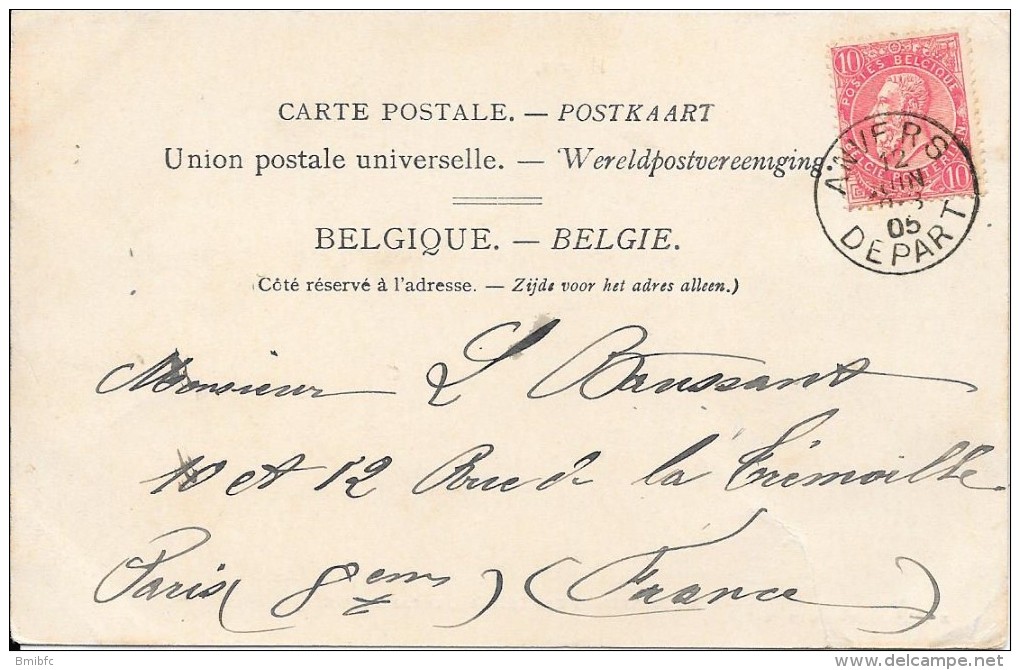 10 POSTES BELGIQUE
10
CARTE POSTALE. — POSTKAART
Union postale universelle. — Wereldpostvereeniging.
BELGIQUE. — BELGIE.
(Côté réservé à l'adresse. — Zijde voor het adres alleen.)
ANVIERS
12
JUIN
05
DEPART
Monsieur L Baussant
10 et 12 Rue de la Trémoille
Paris (8em) (France)
Bmibfc
delcampe.net